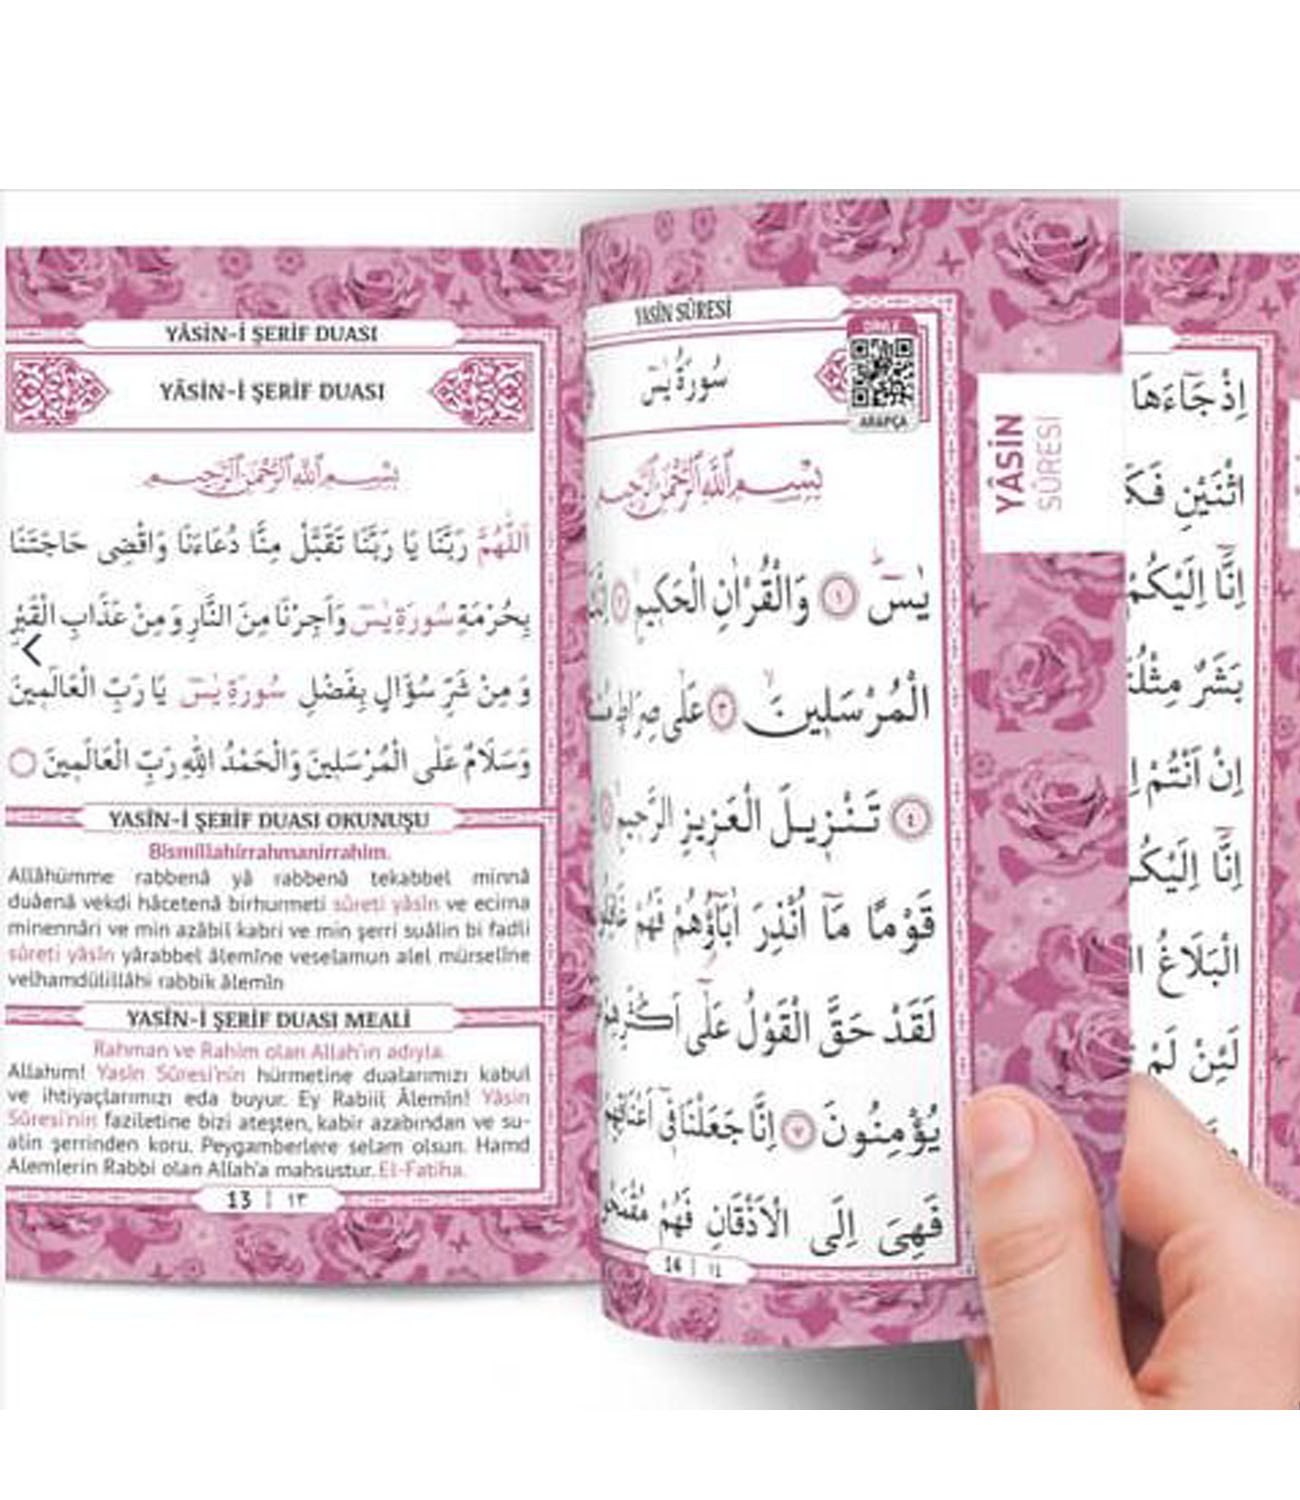 YÂSİN-İ ŞERİF DUASI
YÂSİN-İ ŞERİF DUASI
بِسْمِ اللّٰهِ الرَّحْمٰنِ الرَّحِيمِ
اَللّٰهُمَّ رَبَّنَا يَا رَبَّنَا تَقَبَّلْ مِنَّا دُعَاءَنَا وَاقْضِى حَاجَتَنَا
بِحُرْمَةِ سُورَةِ يٰسٓ وَاَجِرْنَا مِنَ النَّارِ وَمِنْ عَذَابِ الْقَبْرِ
وَمِنْ شَرِّ سُؤَالٍ بِفَضْلِ سُورَةِ يٰسٓ يَا رَبَّ الْعَالَمِينَ
وَسَلَامٌ عَلَى الْمُرْسَلِينَ وَالْحَمْدُ لِلّٰهِ رَبِّ الْعَالَمِينَ
YASİN-İ ŞERİF DUASI OKUNUŞU
Bismillahirrahmanirrahim.
Allâhümme rabbenâ yâ rabbenâ tekabbel minnâ
duâenâ vekdi hâcetenâ birhurmeti sûreti yâsîn ve ecirna
minennâri ve min azâbil kabri ve min şerri suâlin bi fadli
sûreti yâsîn yârabbel âlemîne veselamun alel mürselîne
velhamdülillâhi rabbik âlemîn
YASİN-İ ŞERİF DUASI MEALİ
Rahman ve Rahim olan Allah'ın adıyla.
Allahım! Yasin Sûresi'nin hürmetine dualarımızı kabul
ve ihtiyaçlarımızı eda buyur. Ey Rabiil Âlemîn! Yâsin
Sûresi'nin faziletine bizi ateşten, kabir azabından ve su-
alin şerrinden koru. Peygamberlere selam olsun. Hamd
Alemlerin Rabbi olan Allah'a mahsustur. El-Fatiha.
13 | ١٣
YASİN SÛRESİ
سُورَةُ يٰسٓ
DİNLE
ARAPÇA
بِسْمِ اللّٰهِ الرَّحْمٰنِ الرَّحِيمِ
يٰسٓ ١ وَالْقُرْاٰنِ الْحَكِيمِ ٢
الْمُرْسَلِينَ ٣ عَلٰى صِرَاطٍ
٤ تَنْزِيلَ الْعَزِيزِ الرَّحِيمِ
قَوْمًا مَٓا اُنْذِرَ اٰبَٓاؤُهُمْ فَهُمْ
لَقَدْ حَقَّ الْقَوْلُ عَلٰٓى اَكْثَرِهِمْ
يُؤْمِنُونَ ٧ اِنَّا جَعَلْنَا فٖٓى اَعْنَاقِهِمْ
فَهِىَ اِلَى الْاَذْقَانِ فَهُمْ
YÂSİN
SÛRESİ
اِذْ جَٓاءَهَا
اثْنَيْنِ
اِنَّٓا اِلَيْكُمْ
بَشَرٌ
اِنْ اَنْتُمْ
اِنَّٓا
الْبَلَاغُ
لَئِنْ لَمْ